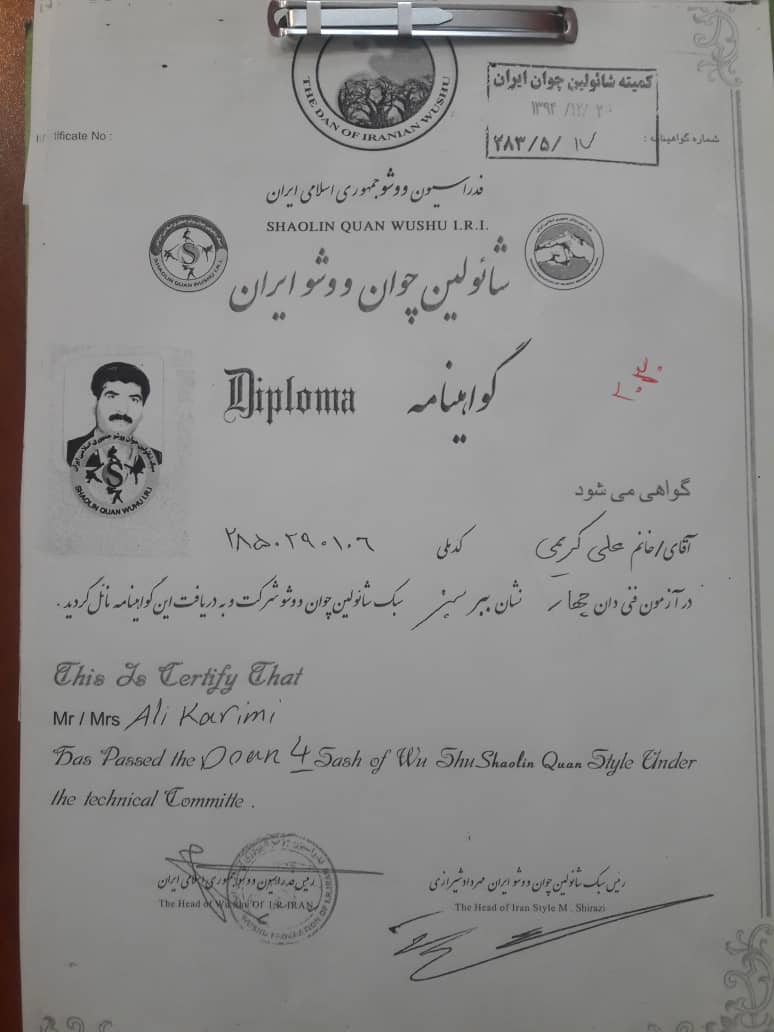 THE DAN OF IRANIAN WUSHU
کمیته شائولین چوان ایران
۱۳۹۴/۱۲/۲۰
Certificate No :
شماره گواهینامه :
۲۸۳/۵/۱۷
فدراسیون ووشو جمهوری اسلامی ایران
SHAOLIN QUAN WUSHU I.R.I.
SHAOLIN QUAN WUSHU I.R.I.
شائولین چوان ووشو ایران
Diploma
گواهینامه
سبک شائولین چوان ووشو جمهوری اسلامی ایران
SHAOLIN QUAN WUSHU I.R.I.
گواهی می شود
آقای/خانم علی کریمی کدملی ۲۸۵۰۲۹۰۱۰۶
در آزمون فنی دان چهار نشان ببر سبز سبک شائولین چوان ووشو شرکت و به دریافت این گواهینامه نائل گردید .
This Is Certify That
Mr / Mrs Ali Karimi
Has Passed the Doan 4 Sash of Wu Shu Shaolin Quan Style Under
the technical Committe .
رییس فدراسیون ووشو جمهوری اسلامی ایران
The Head of Wushu Of I.R.IRAN
WUSHU FEDERATION OF I.R.IRAN
رییس سبک شائولین چوان ووشو ایران مهرداد شیرازی
The Head of Iran Style M . Shirazi